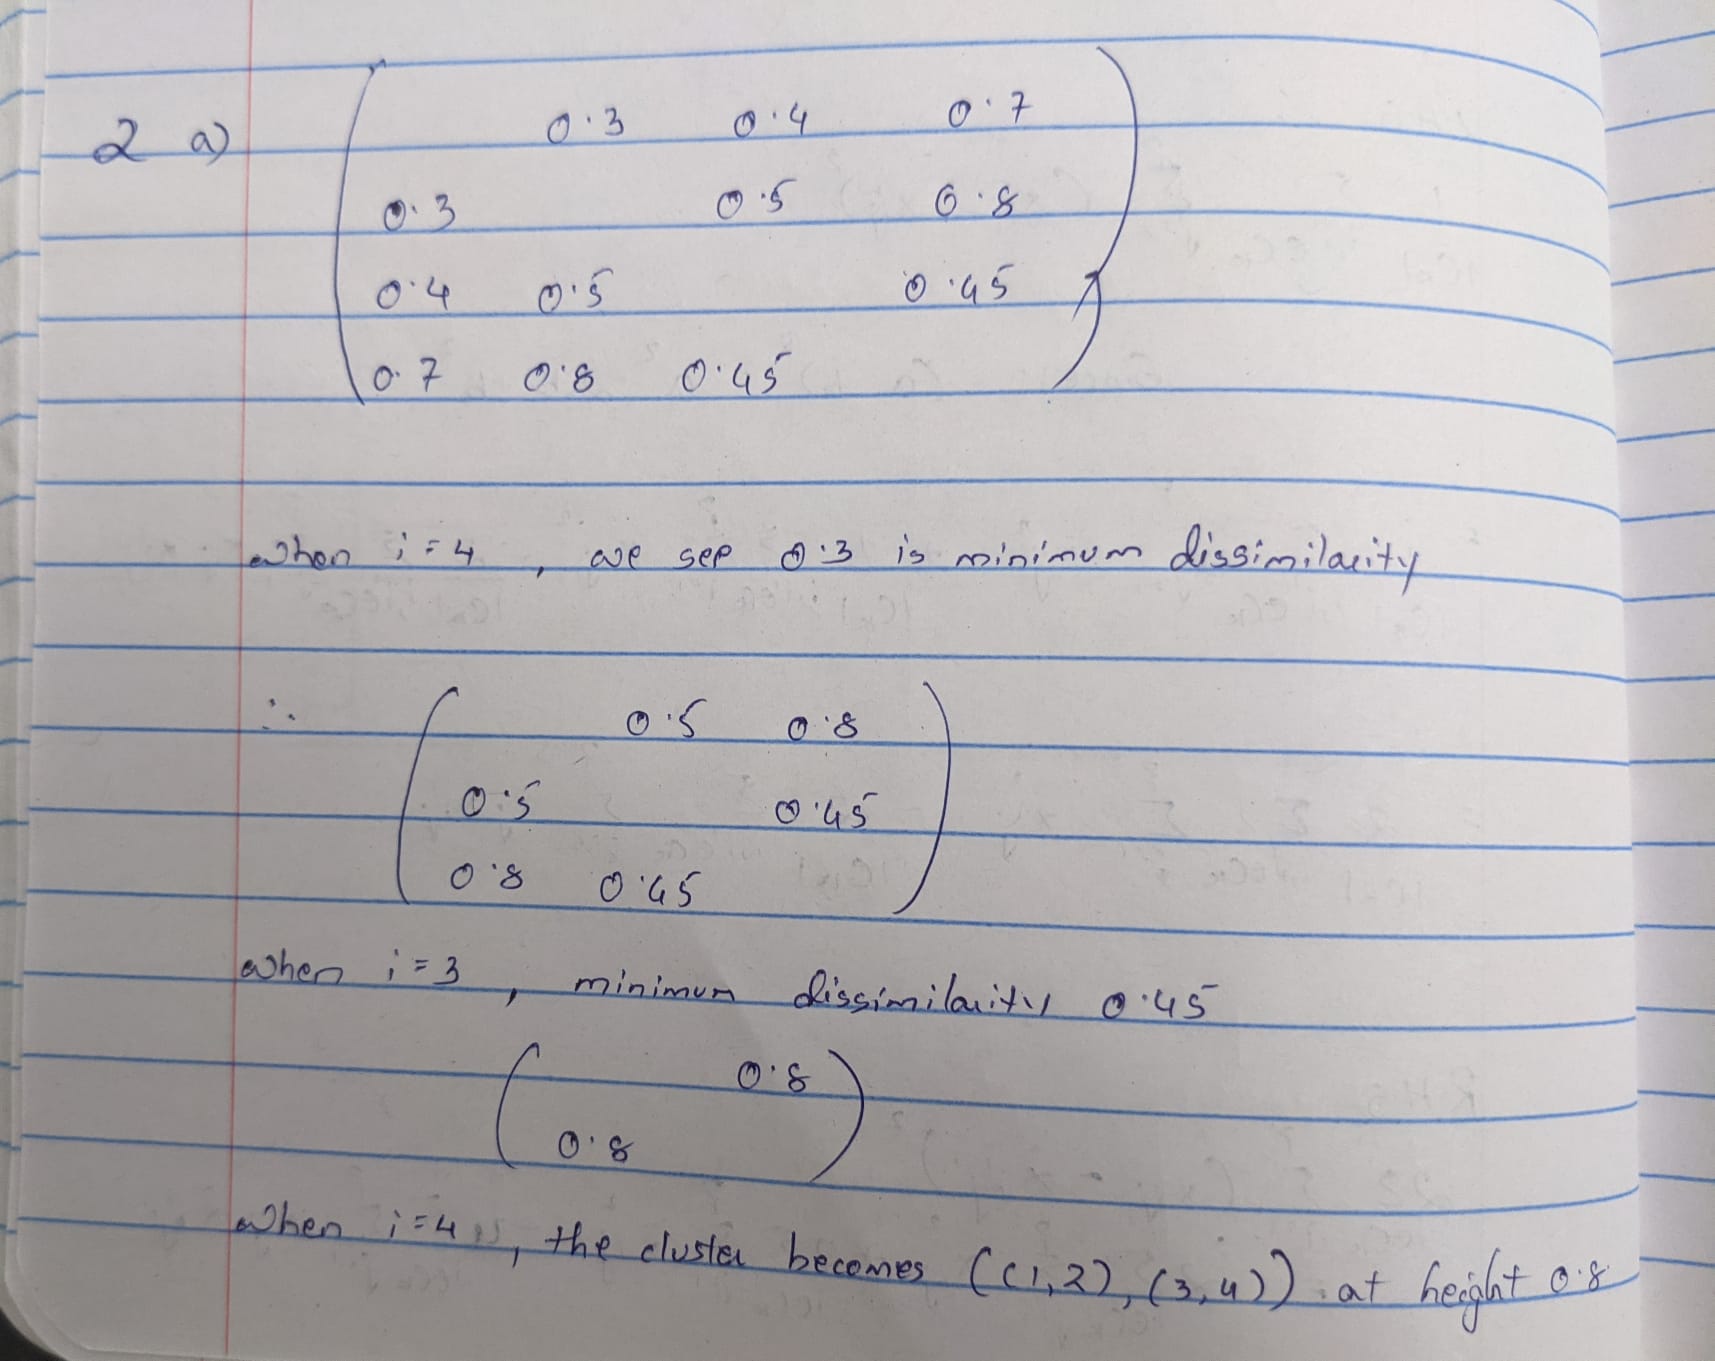 2 a)
0.3 0.4 0.7
0.3 0.5 0.8
0.4 0.5 0.45
0.7 0.8 0.45
when i=4, we see 0.3 is minimum dissimilarity
∴ 0.5 0.8
0.5 0.45
0.8 0.45
when i=3, minimum dissimilarity 0.45
0.8
0.8
when i=4, the cluster becomes ((1,2),(3,4)) at height 0.8